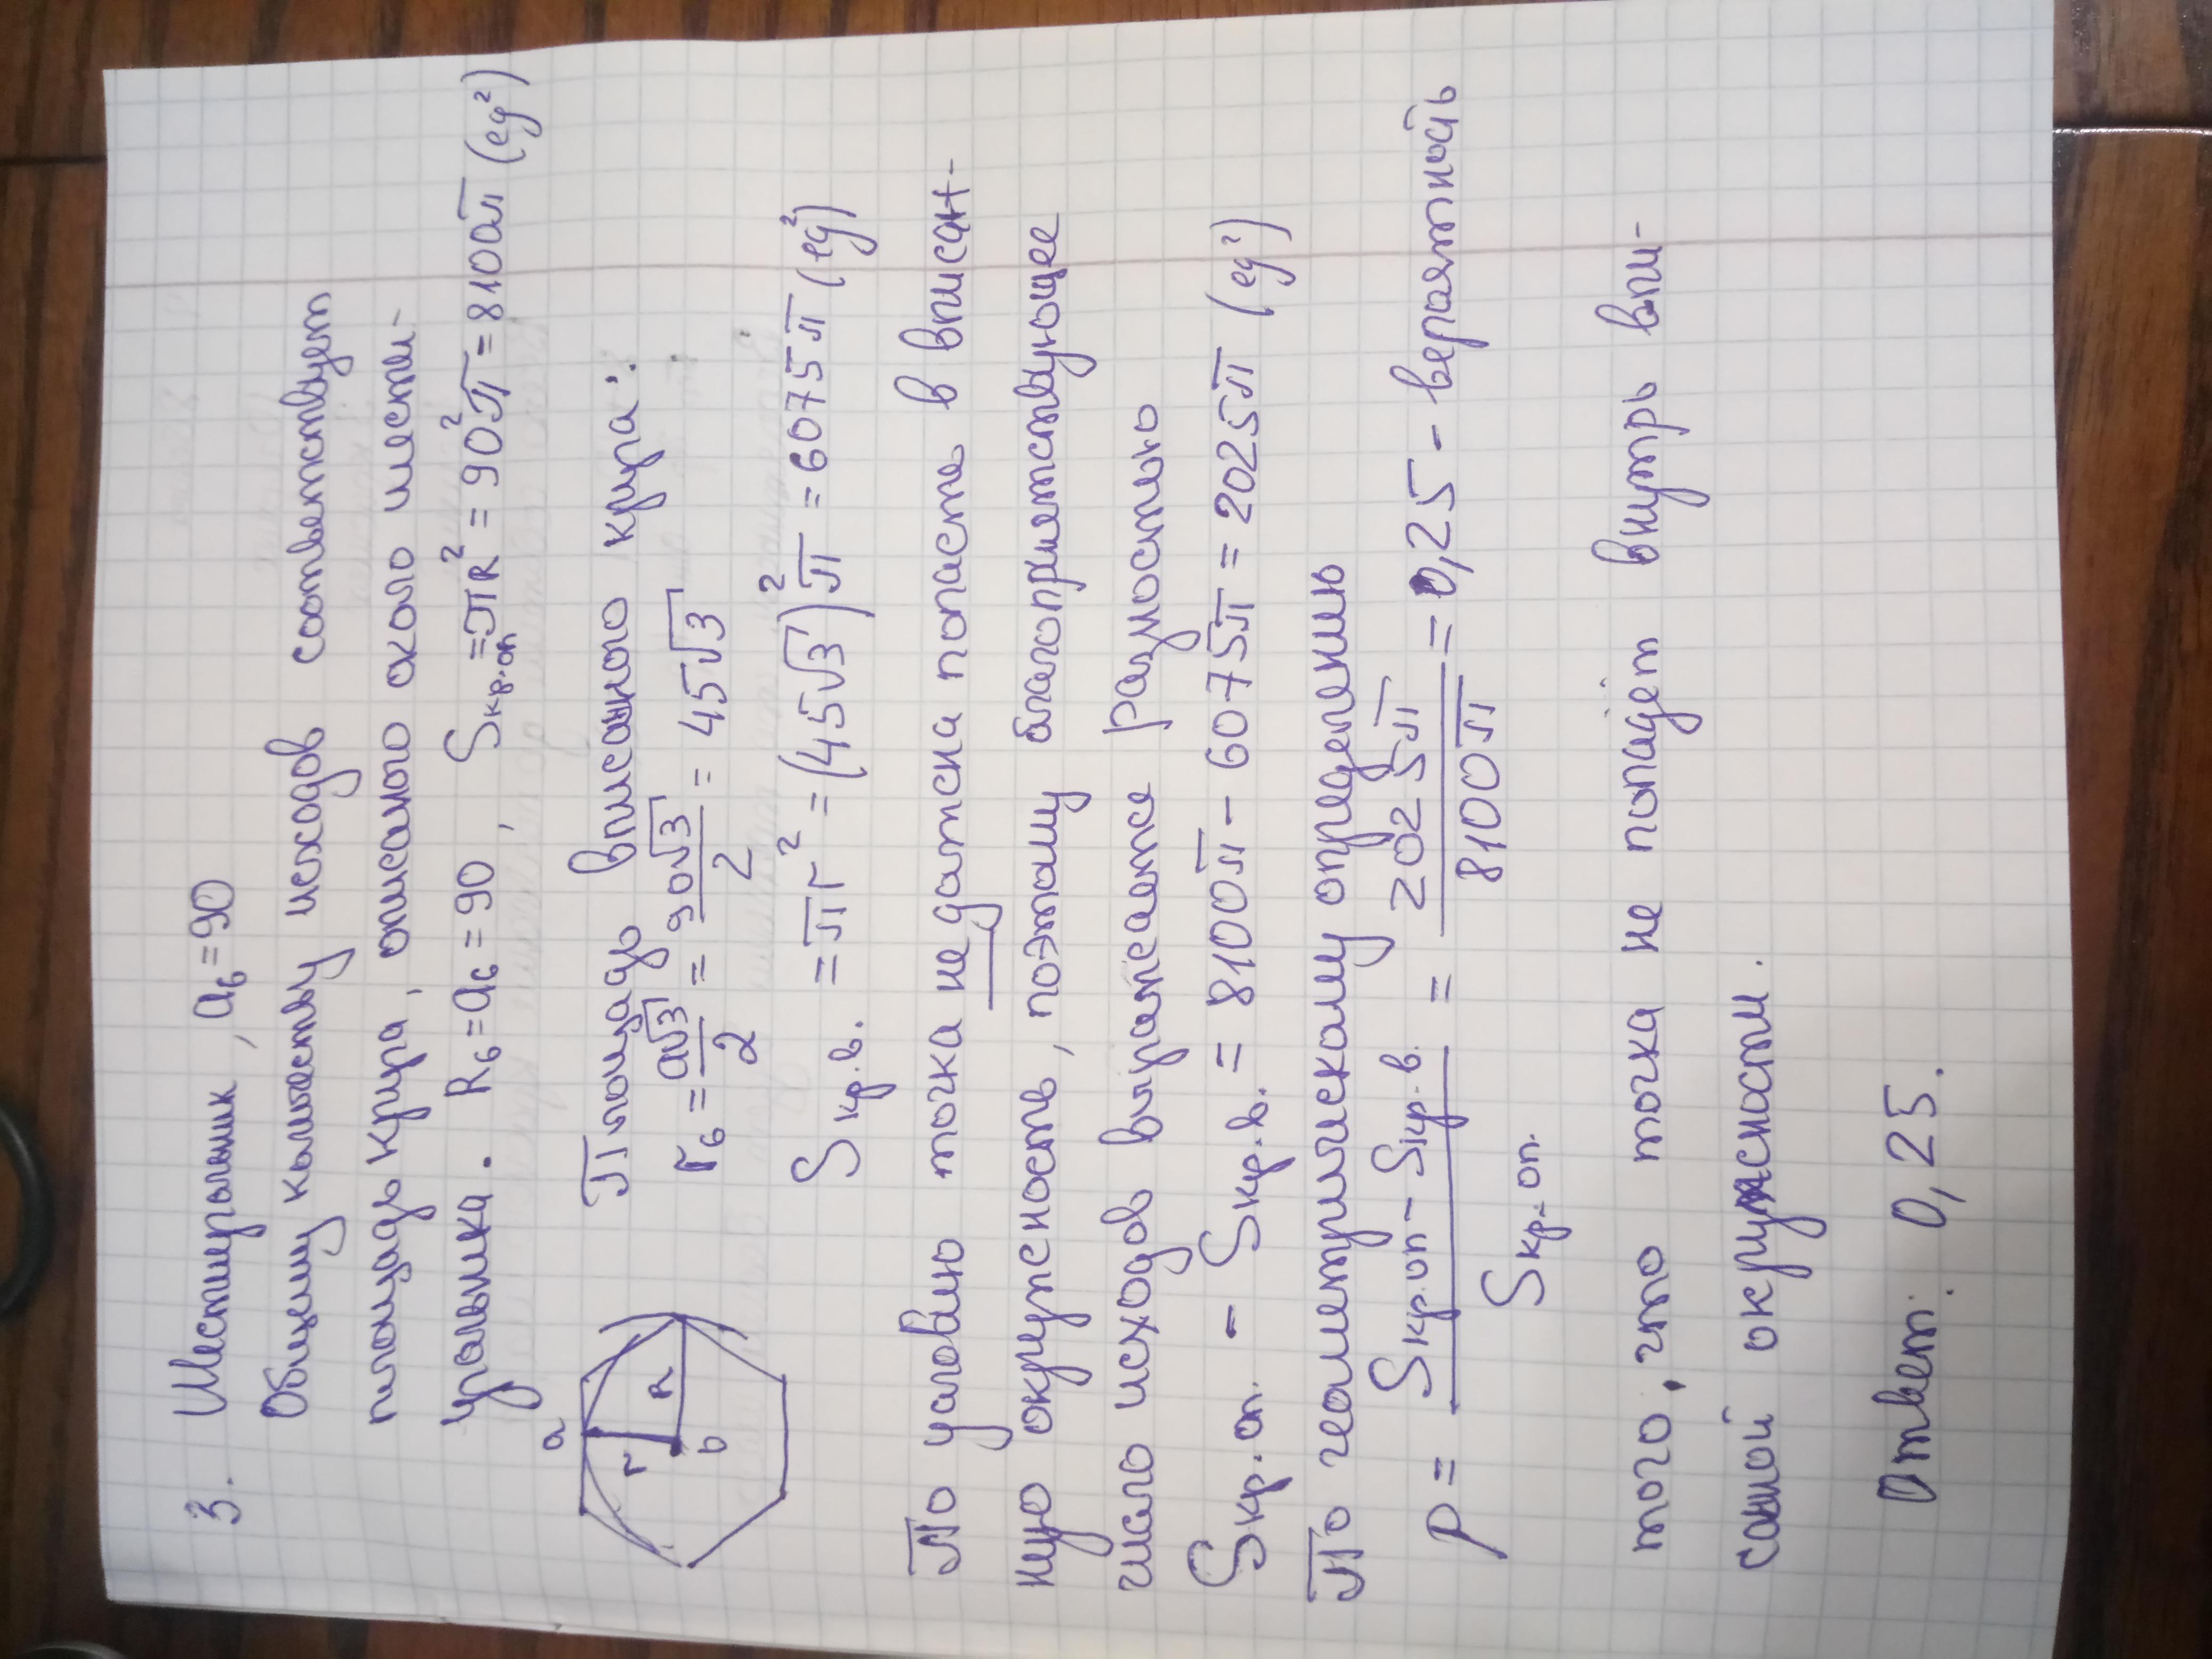 3. Шестиугольник, a₆=90
Общему количеству исходов соответствует
площадь круга, описаного около шести-
угольника. R₆=a₆=90, Sкр.оп=πR²=90²π=8100π (ед²)
Площадь вписаного круга:
r₆=a√3/2=90√3/2=45√3
a
r
R
Sкр.в.=πr²=(45√3)²π=6075π (ед²)
По условию точка не датсна попасть в вписан-
ную окружность, поэтому благоприетствующее
число исходов выражается разностью
Sкр.оп. - Sкр.в.=8100π-6075π=2025π (ед²)
По геометрическому определению
p=(Sкр.оп-Sкр.в.)/Sкр.оп.=2025π/8100π=0,25-вероятность
того, что точка не попадёт внутрь впи-
саной окружности.
Ответ: 0,25.